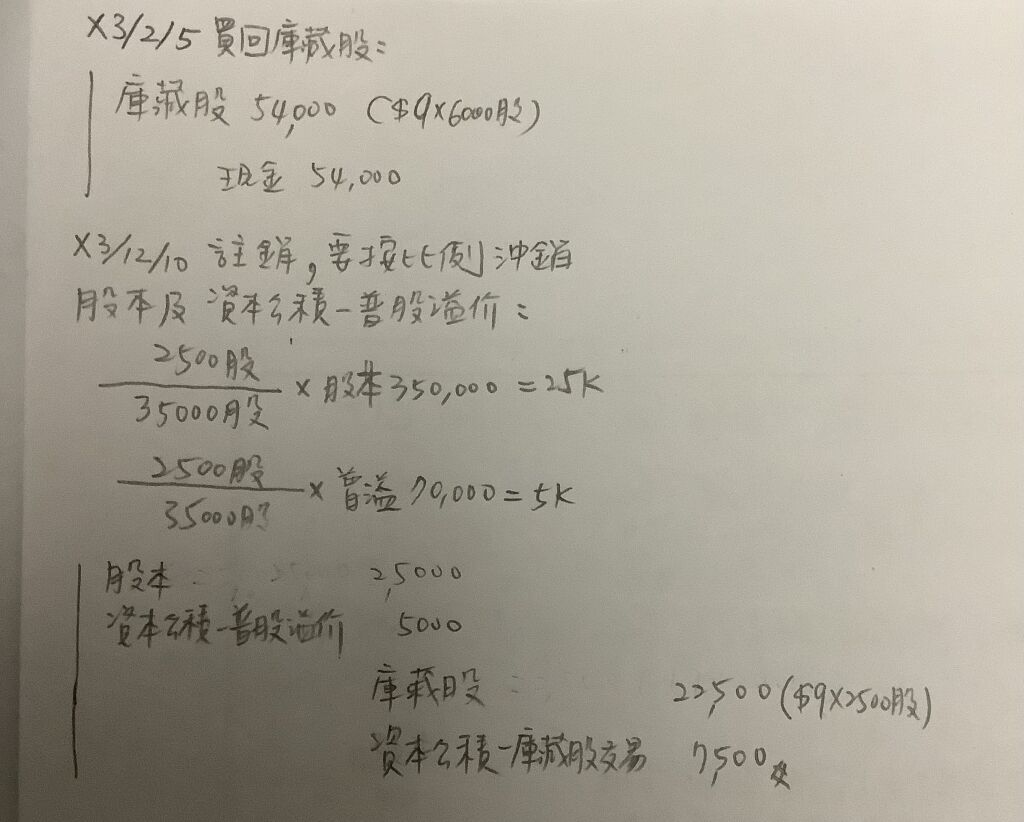 X3/2/5 買回庫藏股:
庫藏股 54,000 ($9×6000股)
現金 54,000
X3/12/10 註銷,要按比例沖銷
股本及 資本公積-普股溢价:
2500股
35000股
× 股本350,000 = 25K
2500股
35000股
× 普溢 70,000 = 5K
股本 25,000
資本公積-普股溢价 5000
庫藏股 22,500 ($9×2500股)
資本公積-庫藏股交易 7,500